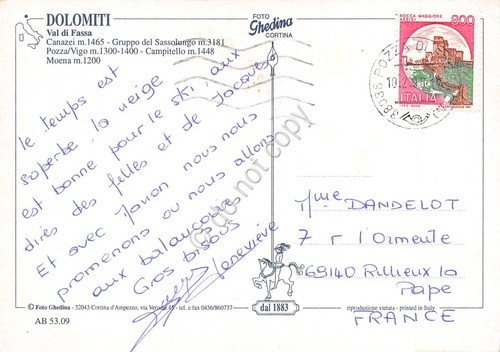 DOLOMITI
Val di Fassa
Canazei m.1465 - Gruppo del Sassolungo m.3181
Pozza/Vigo m.1300-1400 - Campitello m.1448
Moena m.1200
FOTO
Ghedina
CORTINA
ROCCA MAGGIORE
800
ITALIA
38036 POZZA DI
le temps est
superbe la neige
est bonne pour le ski aux
dires des filles et de Jacques
Et avec Manon nous nous
promenons ou nous allons
aux balançoires
Gros bisous
Geneviève
Mme DANDELOT
7 r l'Ormente
69140 Rillieux la
Pape
FRANCE
do not copy
© Foto Ghedina - 32043 Cortina d'Ampezzo, via Verocai 45 - tel. e fax 0436/860737
dal 1883
riproduzione vietata - printed in Italy
AB 53.09